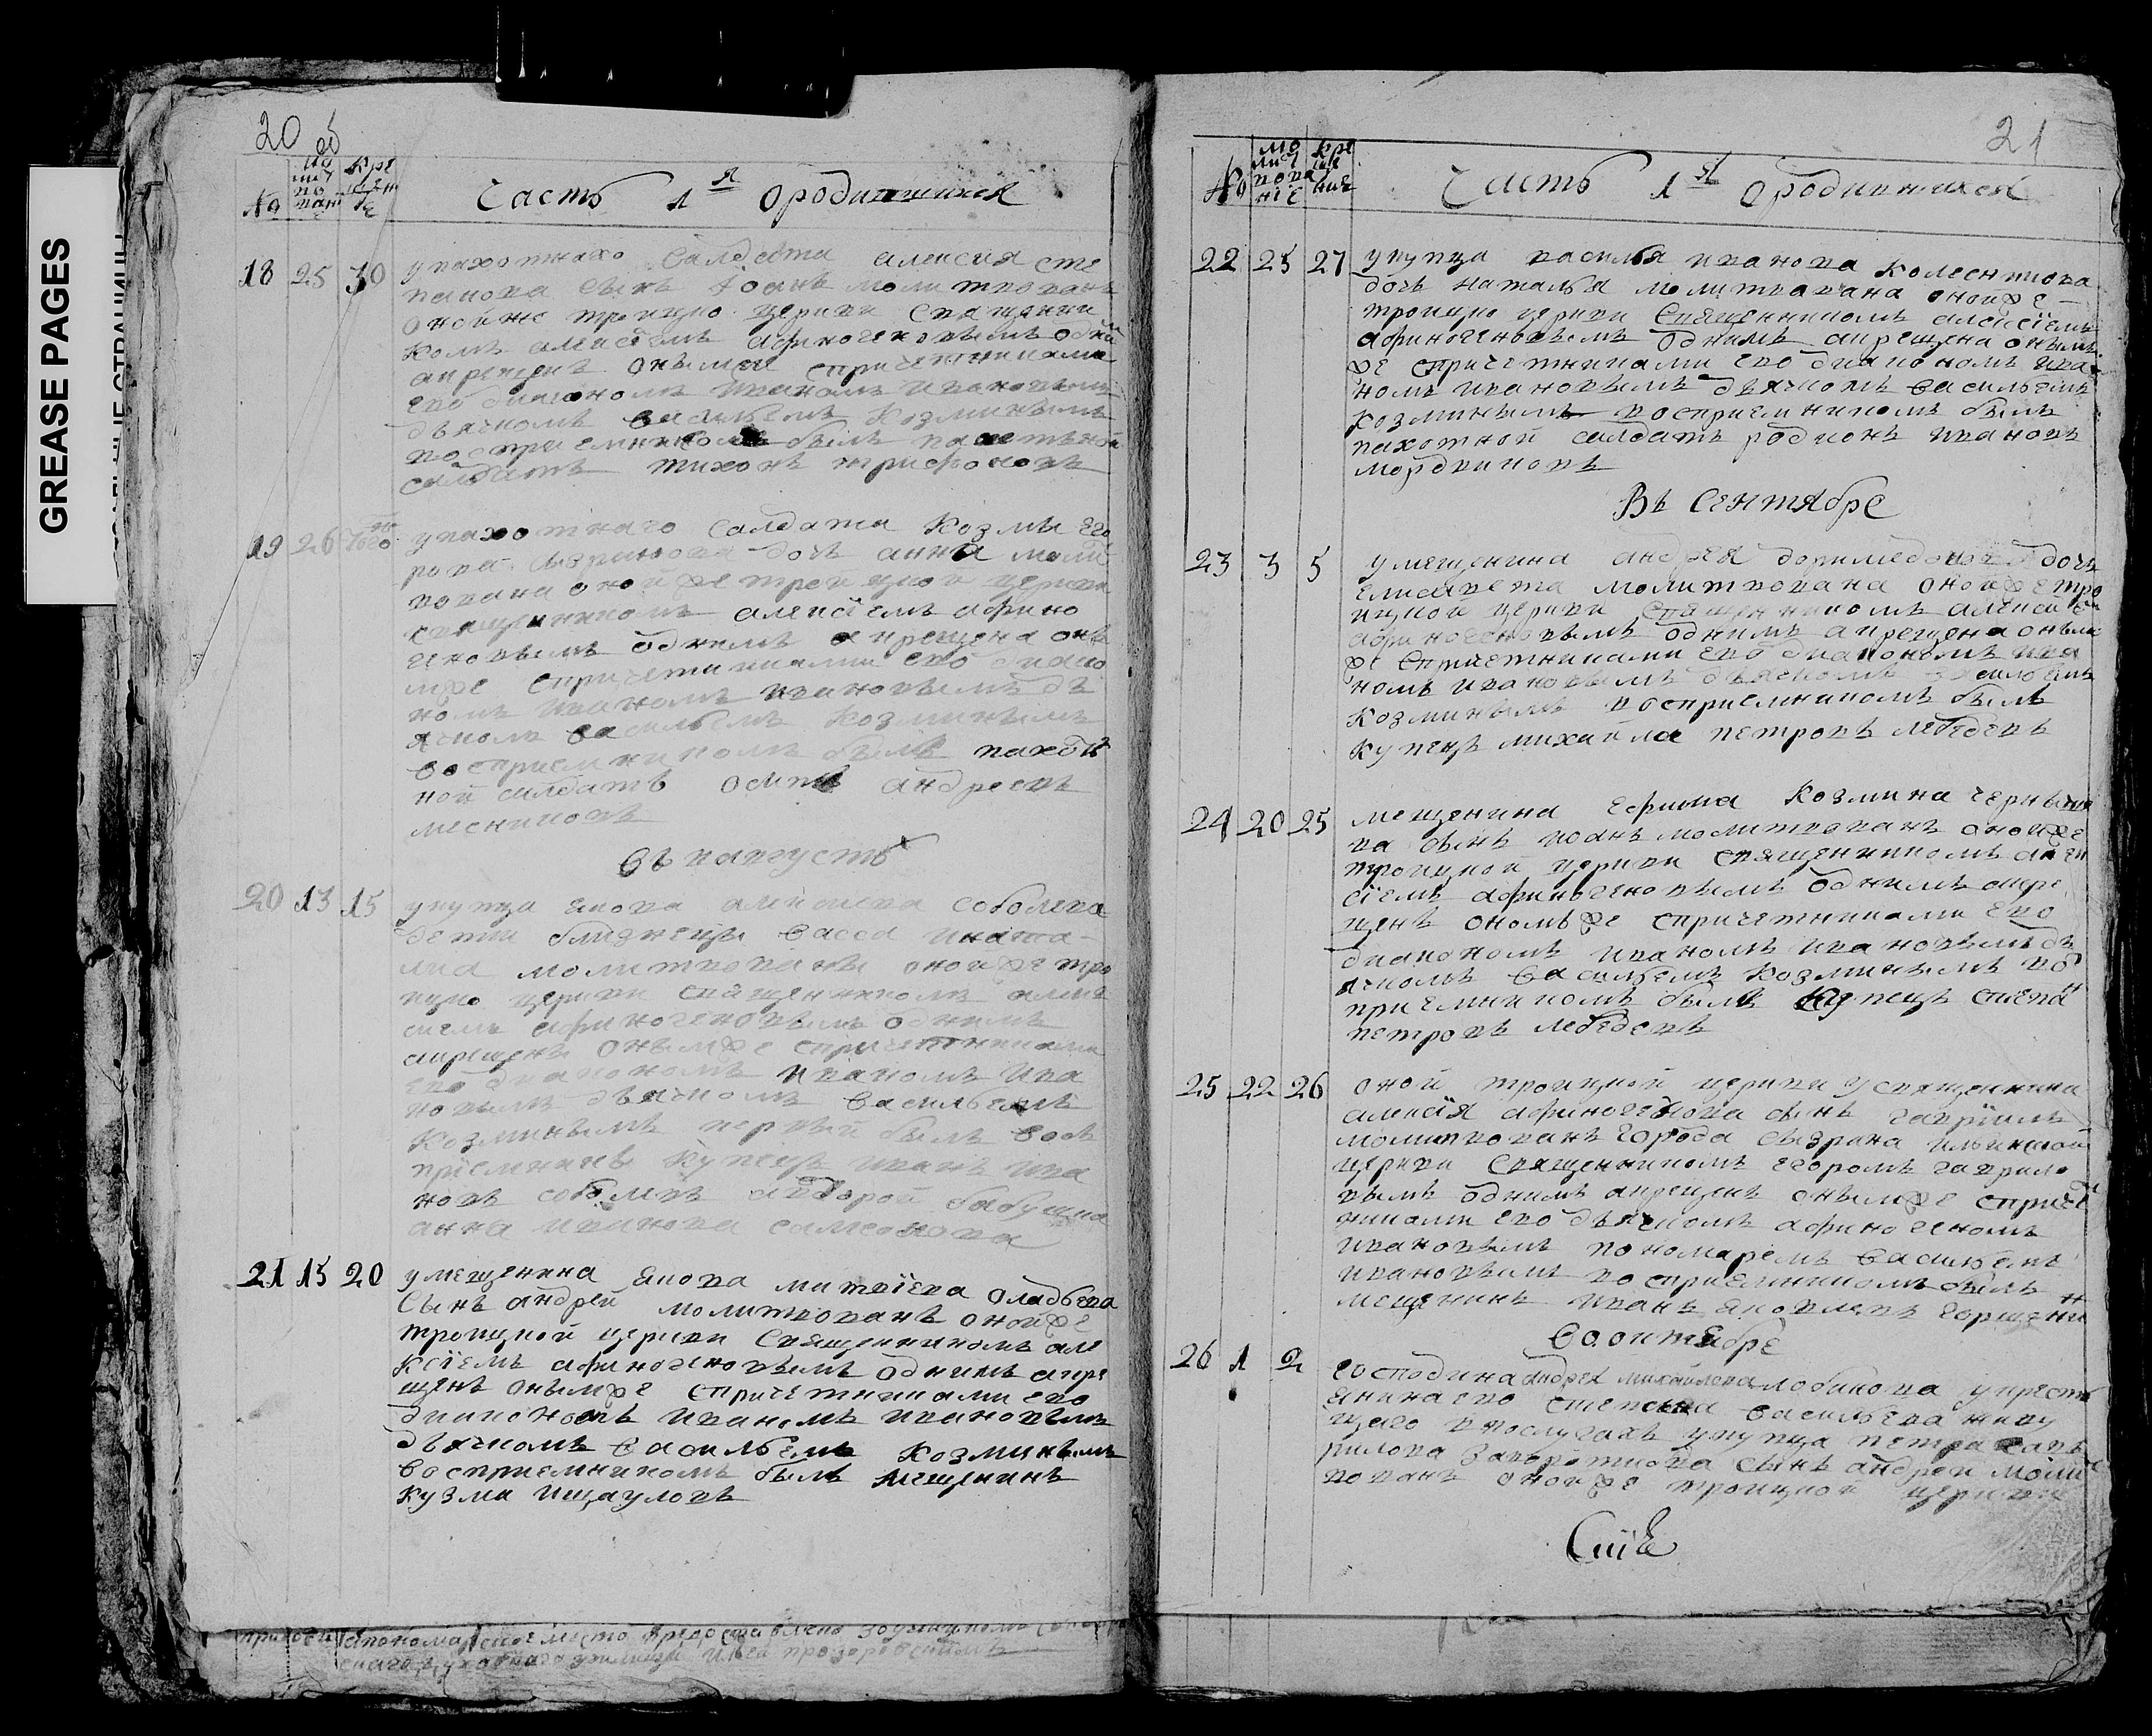 GREASE PAGES
20 об
№
мо
лит
во
ван
Кре
щен
Часть 1я ородившихся
18 25 30 упахотнаго Салдата алексея сте
панова Сынъ Iоанъ молитвованъ
онойже троицко церкви священни
комъ алексiемъ афиногеновымъ одни
акрещенъ онымже спричетниками
его диаконом Иваномъ Ивановымъ
дьячкомъ василъемъ Козминымъ
восприемникомъ былъ пахотной
салдатъ тихонъ трифоновъ
19 26 того упахотнаго Салдата Козмы его
рова дочь анна моли
вована онойже тройцкой церкви
священникомъ алексiемъ афино
геновымъ однимъ акрещена оны
мже спричетниками его диако
номъ иваномъ ивановымъ дь
ячкомъ василъемъ Козминымъ
восприемникомъ былъ пахот
ной салдатъ осипъ андреевъ
месниковъ
Въ августъ
20 13 15 укупца якова алексеева соболева
дети близнецы васса ината
лиа молитвованы онойже тро
ицко церкви священникомъ алек
сиемъ афиногеновымъ однимъ
акрещены онымже спричетниками
его диакономъ иваномъ ива
новымъ дьячкомъ василъемъ
Козминымъ первый былъ вос
прiемникъ Купецъ иванъ ива
новъ соболевъ авторой бабушка
анна иванова самсонова
21 15 20 умещенина якова матвiева оладъева
Сынъ андрей молитвованъ онойже
троицкой церкви Священникомъ але
Ксiемъ афиногеновымъ однимъ акре
щенъ онымже спричетниками его
диакономъ иваномъ ивановымъ
дьячкомъ василъемъ Козминымъ
восприемникомъ былъ мещенинъ
кузма ищауловъ
21
№
мо
лит
вова
нiе
Кре
ще
ние
Часть 1я Ородившихся
22 25 27 укупца василъя иванова Колесникова
дочь наталъя молитвована онойже
троицко церкви Священникомъ алексiемъ
афиногеновымъ однимъ акрещена онымъ
же спричетниками его диакономъ ива
номъ ивановымъ дьячкомъ василъемъ
Козминымъ восприемникомъ былъ
пахотной салдатъ родионъ ивановъ
мордвиновъ
Въ Сентябре
23 3 5 умещенина андрея доримедонова дочь
елисавета молитвована онойже тро
ицкой церкви священникомъ алекси
афиногеновымъ однимъ акрещена оным
же спричетниками его диакономъ ива
номъ ивановымъ дьячкомъ василъемъ
Козминымъ восприемникомъ былъ
купецъ михайла петровъ лебедевъ
24 20 25 мещенина ефима Козмина
ва сынъ иоанъ молитвованъ онойже
троицкой церкви священникомъ алек
сiемъ афиногеновымъ однимъ акре
щенъ онымже спричетниками его
диакономъ иваномъ ивановымъ дь
ячкомъ василъемъ Козминымъ вос
приемникомъ былъ Купецъ степан
петровъ лебедевъ
25 22 26 оной троицкой церкви усвященника
алексiя афиногенова сынъ гаврiилъ
молитвованъ города сызрана илъинской
церкви Священникомъ егоромъ гаврило
вымъ однимъ акрещенъ онымже спричет
никами его дьячкомъ афиногеномъ
ивановымъ пономаремъ василъемъ
ивановымъ восприемникомъ былъ
мещенинъ иванъ яковлевъ
Во октябре
26 1 2 господина андрея михайлева лобанова укресть
янина его степана василъева живу
щаго впослугахъ укупца петра гав
рилова Заворотнова сынъ андрей моли
вованъ онойже троицкой церкви